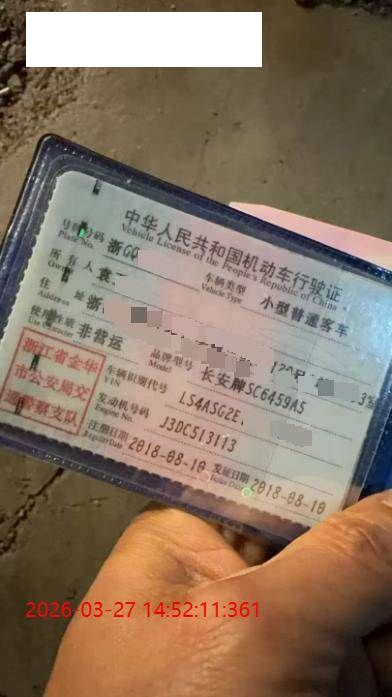 中华人民共和国机动车行驶证
Vehicle License of the People's Republic of China
号牌号码 浙G 车辆类型 小型普通客车
Plate No. Vehicle Type
所有人 袁
Owner
住址 浙
Address
使用性质 非营运 品牌型号 长安牌SC6459A5
Use Character Model
浙江省金华
市公安局交
通警察支队
车辆识别代号 LS4ASG2E
VIN
发动机号码 J3DC513113
Engine No.
注册日期 2018-08-10 发证日期 2018-08-10
Register Date Issue Date
2026-03-27 14:52:11:361